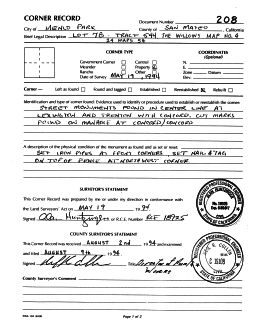 CORNER RECORD
Document Number 208
City of MENLO PARK County of SAN MATEO, California
Brief Legal Description LOT 7B - TRACT 544 THE WILLOWS MAP NO. 4
34 MAPS 58
CORNER TYPE
COORDINATES
(Optional)
Government Corner Control
Meander Property
Rancho Other
Date of Survey MAY 19, 1994
N.
E.
Zone Datum
Elev.
Corner — Left as found Found and tagged Established Reestablished Rebuilt
Identification and type of corner found: Evidence used to identify or procedure used to establish or reestablish the corner:
STREET MONUMENTS FOUND IN CENTER LINE AT
LEXINGTON AND TRENTON WITH CONCORD. CUT MARKS
FOUND ON MANHOLE AT CONCORD/CONCORD
A description of the physical condition of the monument as found and as set or reset:
SET IRON PIPES AT FRONT CORNERS. SET NAIL & TAG
ON TOP OF FENCE AT NORTHWEST CORNER
SURVEYOR'S STATEMENT
This Corner Record was prepared by me or under my direction in conformance with
the Land Surveyors' Act on MAY 19 1994
Signed L.S. or R.C.E. Number RCE 18925
COUNTY SURVEYOR'S STATEMENT
This Corner Record was received AUGUST 2nd 1994 and examined
and filed AUGUST 1994
Signed Title
Works
County Surveyor's Comment
Page 1 of 2